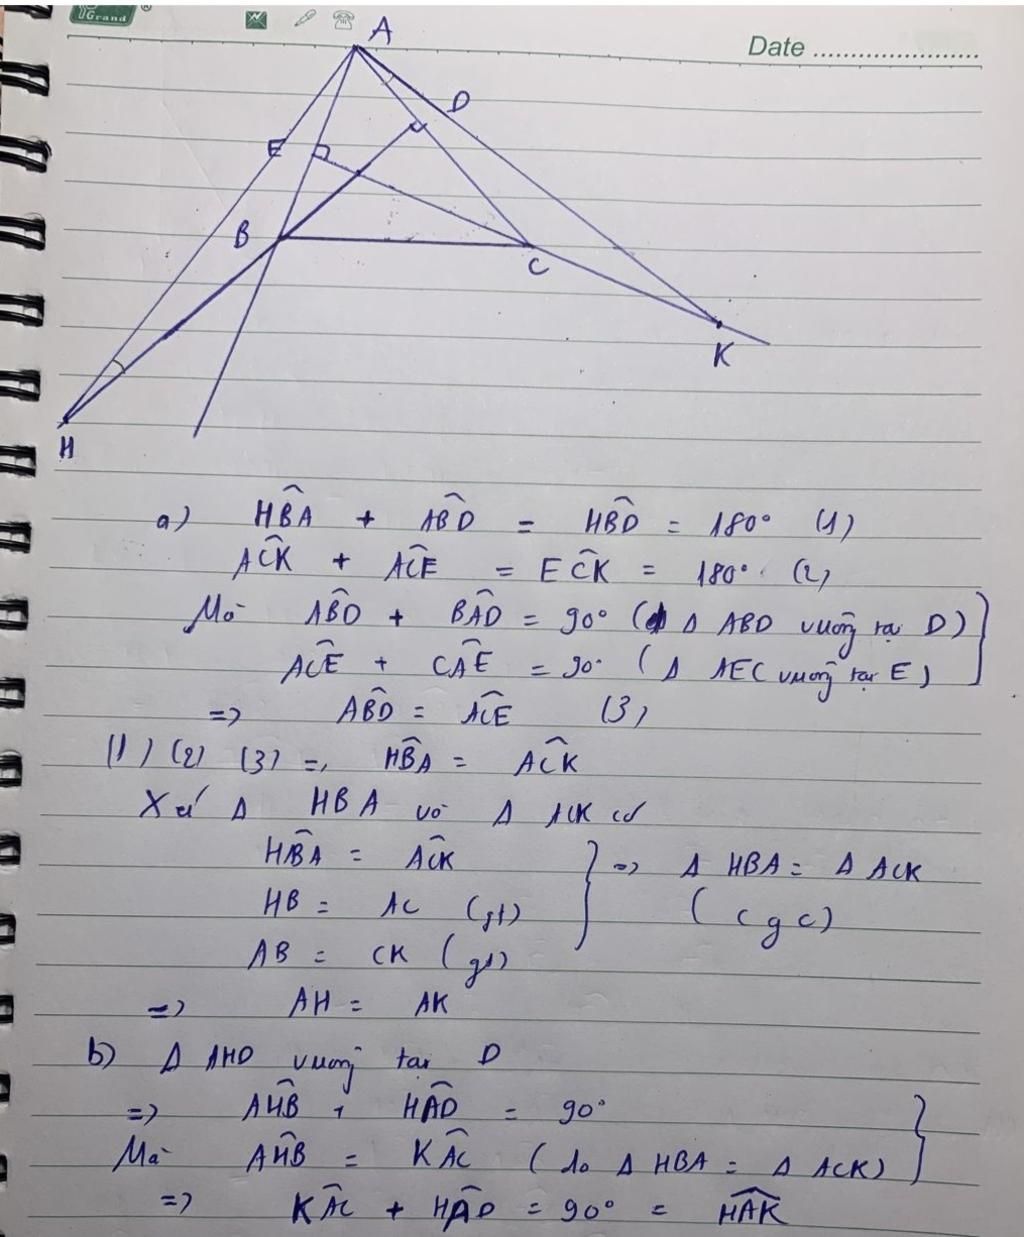 Grand
Date
A
D
E
B
C
K
H
a) HB̂A + AB̂D = HB̂D = 180° (1)
AĈK + AĈE = EĈK = 180° (2)
Mà AB̂D + BÂD = 90° (Δ ABD vuông tại D)
AĈE + CÂE = 90° (Δ AEC vuông tại E)
=> AB̂D = AĈE (3)
(1) (2) (3) => HB̂A = AĈK
Xét Δ HBA và Δ ACK có
HB̂A = AĈK
HB = AC (gt) => Δ HBA = Δ ACK
AB = CK (gt) (cgc)
=> AH = AK
b) Δ AHD vuông tại D
=> AĤB + HÂD = 90°
Mà AĤB = KÂC (do Δ HBA = Δ ACK)
=> KÂC + HÂD = 90° = HÂK